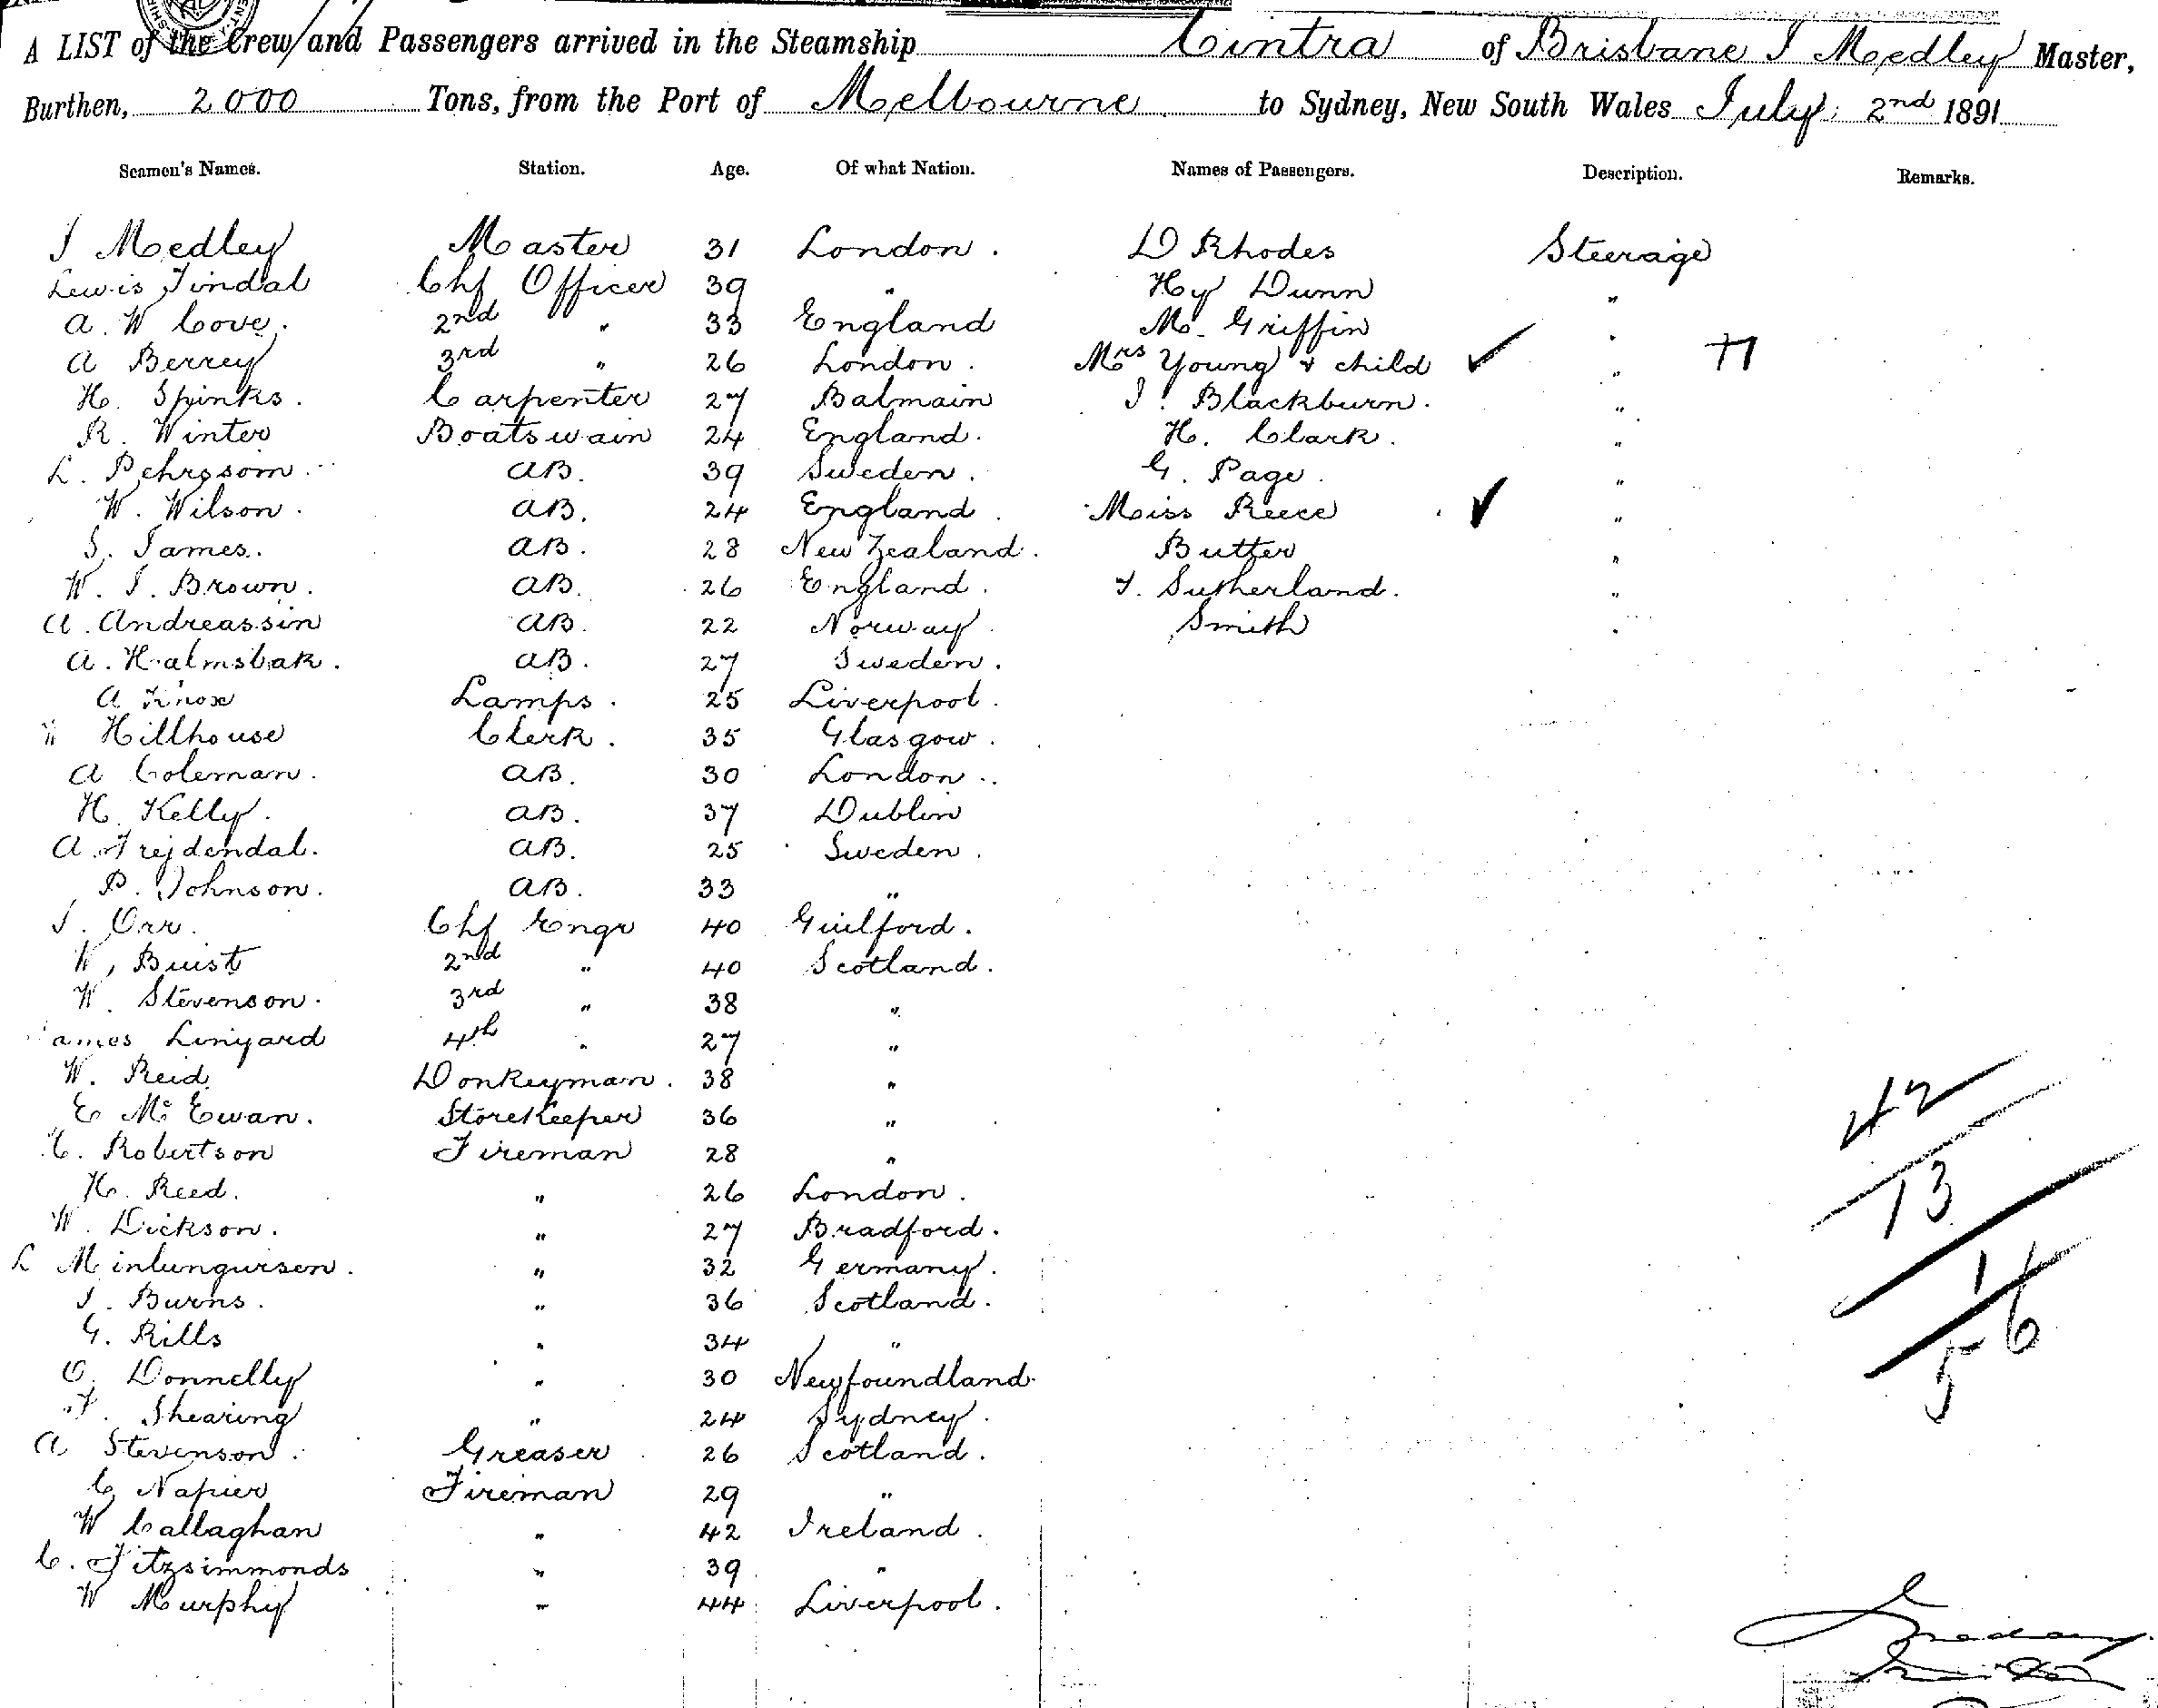 A LIST of the Crew and Passengers arrived in the Steamship Cintra of Brisbane J Medley Master,
Burthen, 2000 Tons, from the Port of Melbourne to Sydney, New South Wales July 2nd 1891
Seamen's Names. Station. Age. Of what Nation. Names of Passengers. Description. Remarks.
J Medley Master 31 London. D Rhodes Steerage
Lewis Tindal Chf Officer 39 " Hy Dunn "
A. W Cove. 2nd " 33 England M. Griffin "
A Berrey 3rd " 26 London. Mrs Young & child "
H. Spinks. Carpenter 27 Balmain J. Blackburn. "
R. Winter Boatswain 24 England. H. Clark. "
L. Pehrssom AB. 39 Sweden. G. Page. "
W. Wilson. AB. 24 England. Miss Reece "
S. James. AB. 28 New Zealand. Butter "
W. J. Brown. AB. 26 England. F. Sutherland. "
A. Andreassin AB. 22 Norway. Smith "
A. Halmsbak. AB. 27 Sweden.
A Knox Lamps. 25 Liverpool.
W Hillhouse Clerk. 35 Glasgow.
A Coleman. AB. 30 London.
H. Kelly. AB. 37 Dublin
A. Frejdendal. AB. 25 Sweden.
P. Johnson. AB. 33 "
J. Orr. Chf Engr 40 Guilford.
W, Buist 2nd " 40 Scotland.
W. Stevenson. 3rd " 38 "
James Linyard 4th " 27 "
W. Reid Donkeyman. 38 "
E McEwan. StoreKeeper 36 "
C. Robertson Fireman 28 "
H. Reed. " 26 London.
W. Dickson. " 27 Bradford.
L Minlunguisen. " 32 Germany.
J. Burns. " 36 Scotland.
G. Rills " 34 "
O. Donnelly " 30 Newfoundland
F. Shearing " 24 Sydney.
A Stevenson. Greaser 26 Scotland.
C Napier Fireman 29 "
W Callaghan " 42 Ireland.
C. Fitzsimmonds " 39 "
W Murphy " 44 Liverpool.
42
13
1
56